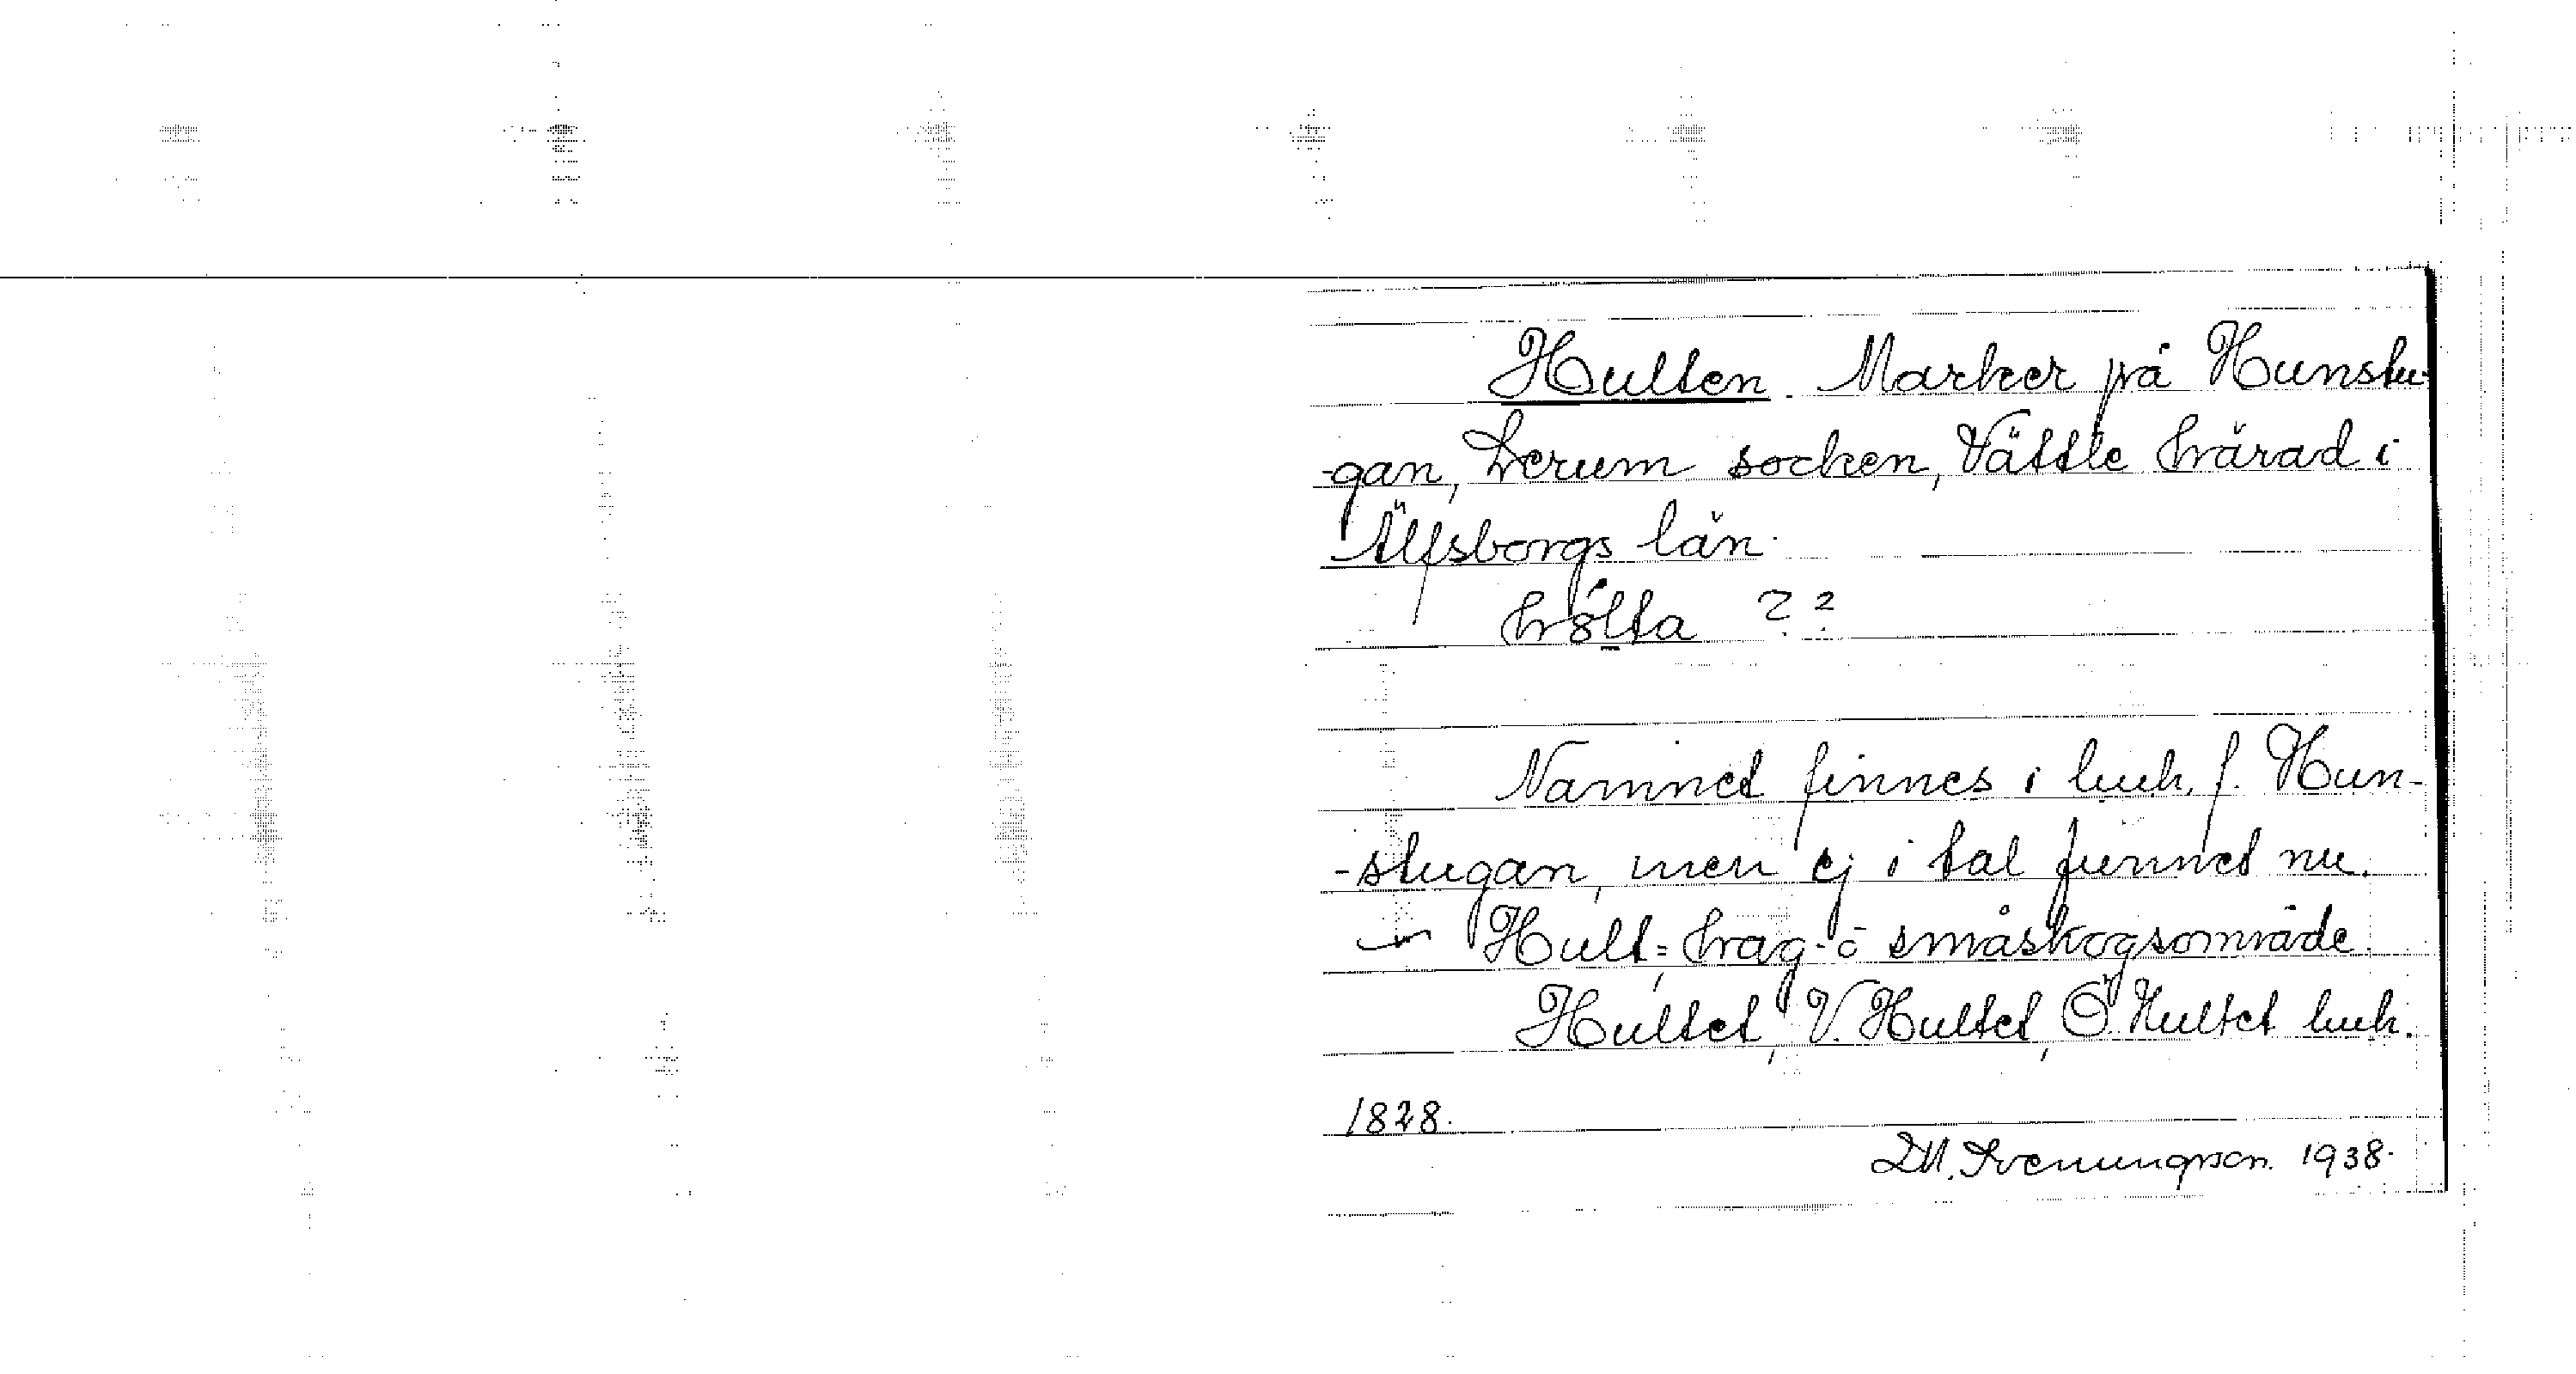 Hulten. Marker på Hunstu-
-gan, Lerum socken, Vättle härad i
Älfsborgs län.
hölta ??
Namnet finnes i luh. f. Hun-
-stugan, men ej i tal funnet nu.
Hult = hag- o småskogsområde.
Hultet, V. Hultet, Ö. Hultet luh.
1828.
D.M. Svenungson. 1938.